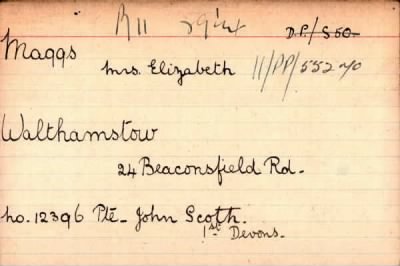 D.P./550.
Maggs
Mrs. Elizabeth 11/PP/55270
Walthamstow
24 Beaconsfield Rd.
No. 12396 Pte. John Scoth.
1st Devons.